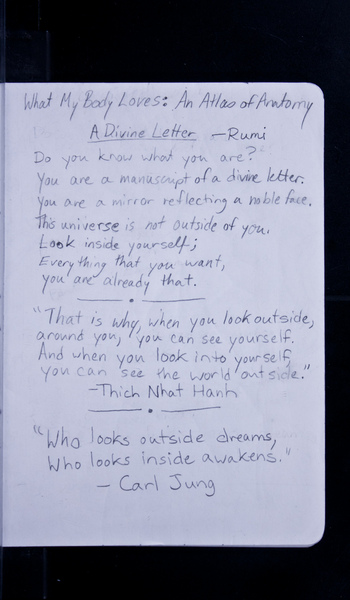 What My Body Loves: An Atlas of Anatomy
A Divine Letter — Rumi
Do you know what you are?
You are a manuscript of a divine letter.
You are a mirror reflecting a noble face.
This universe is not outside of you.
Look inside yourself;
Everything that you want,
you are already that.
"That is why, when you look outside,
around you, you can see yourself.
And when you look into yourself,
you can see the world outside."
—Thich Nhat Hanh
"Who looks outside dreams,
Who looks inside awakens."
— Carl Jung